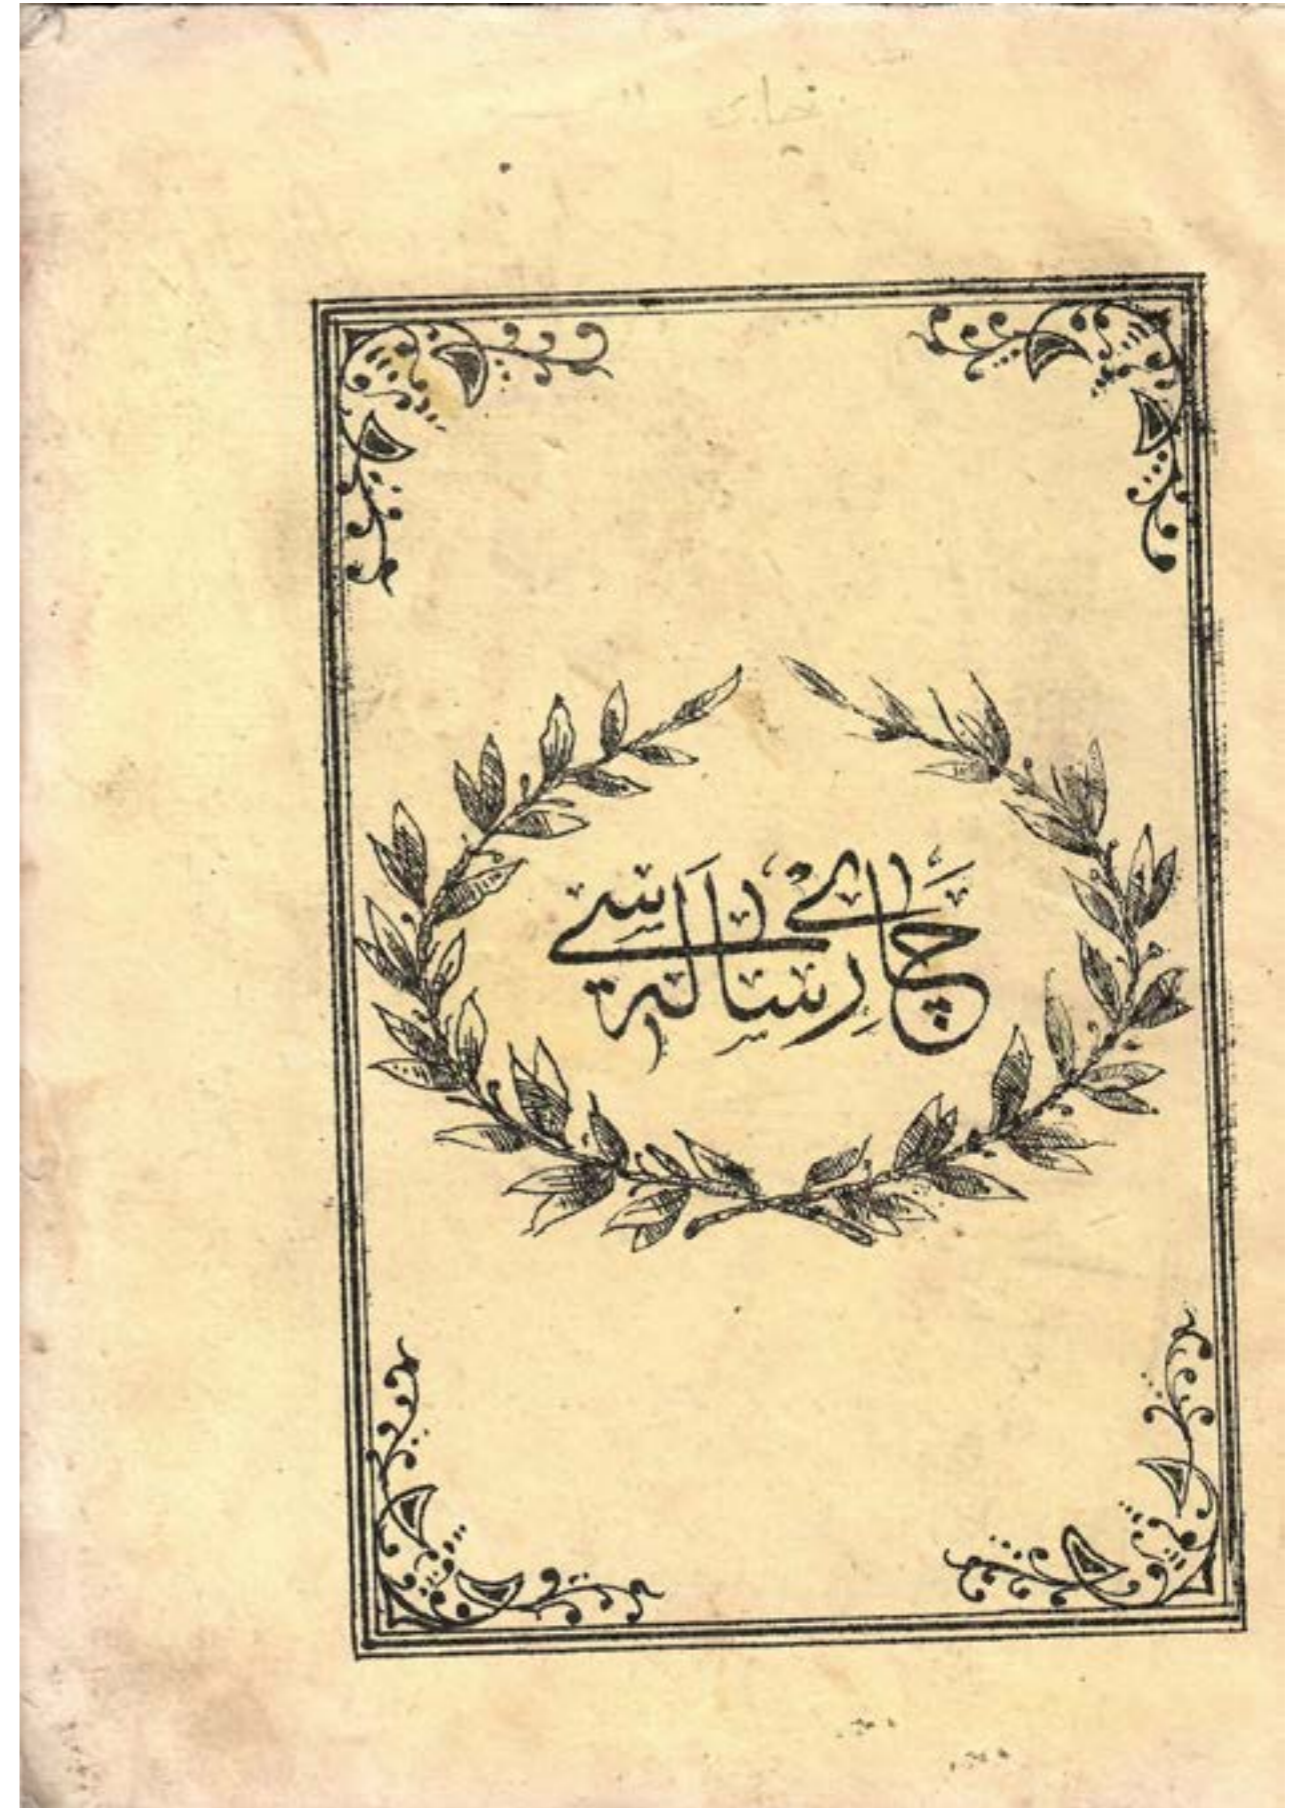 چاى رساله سى